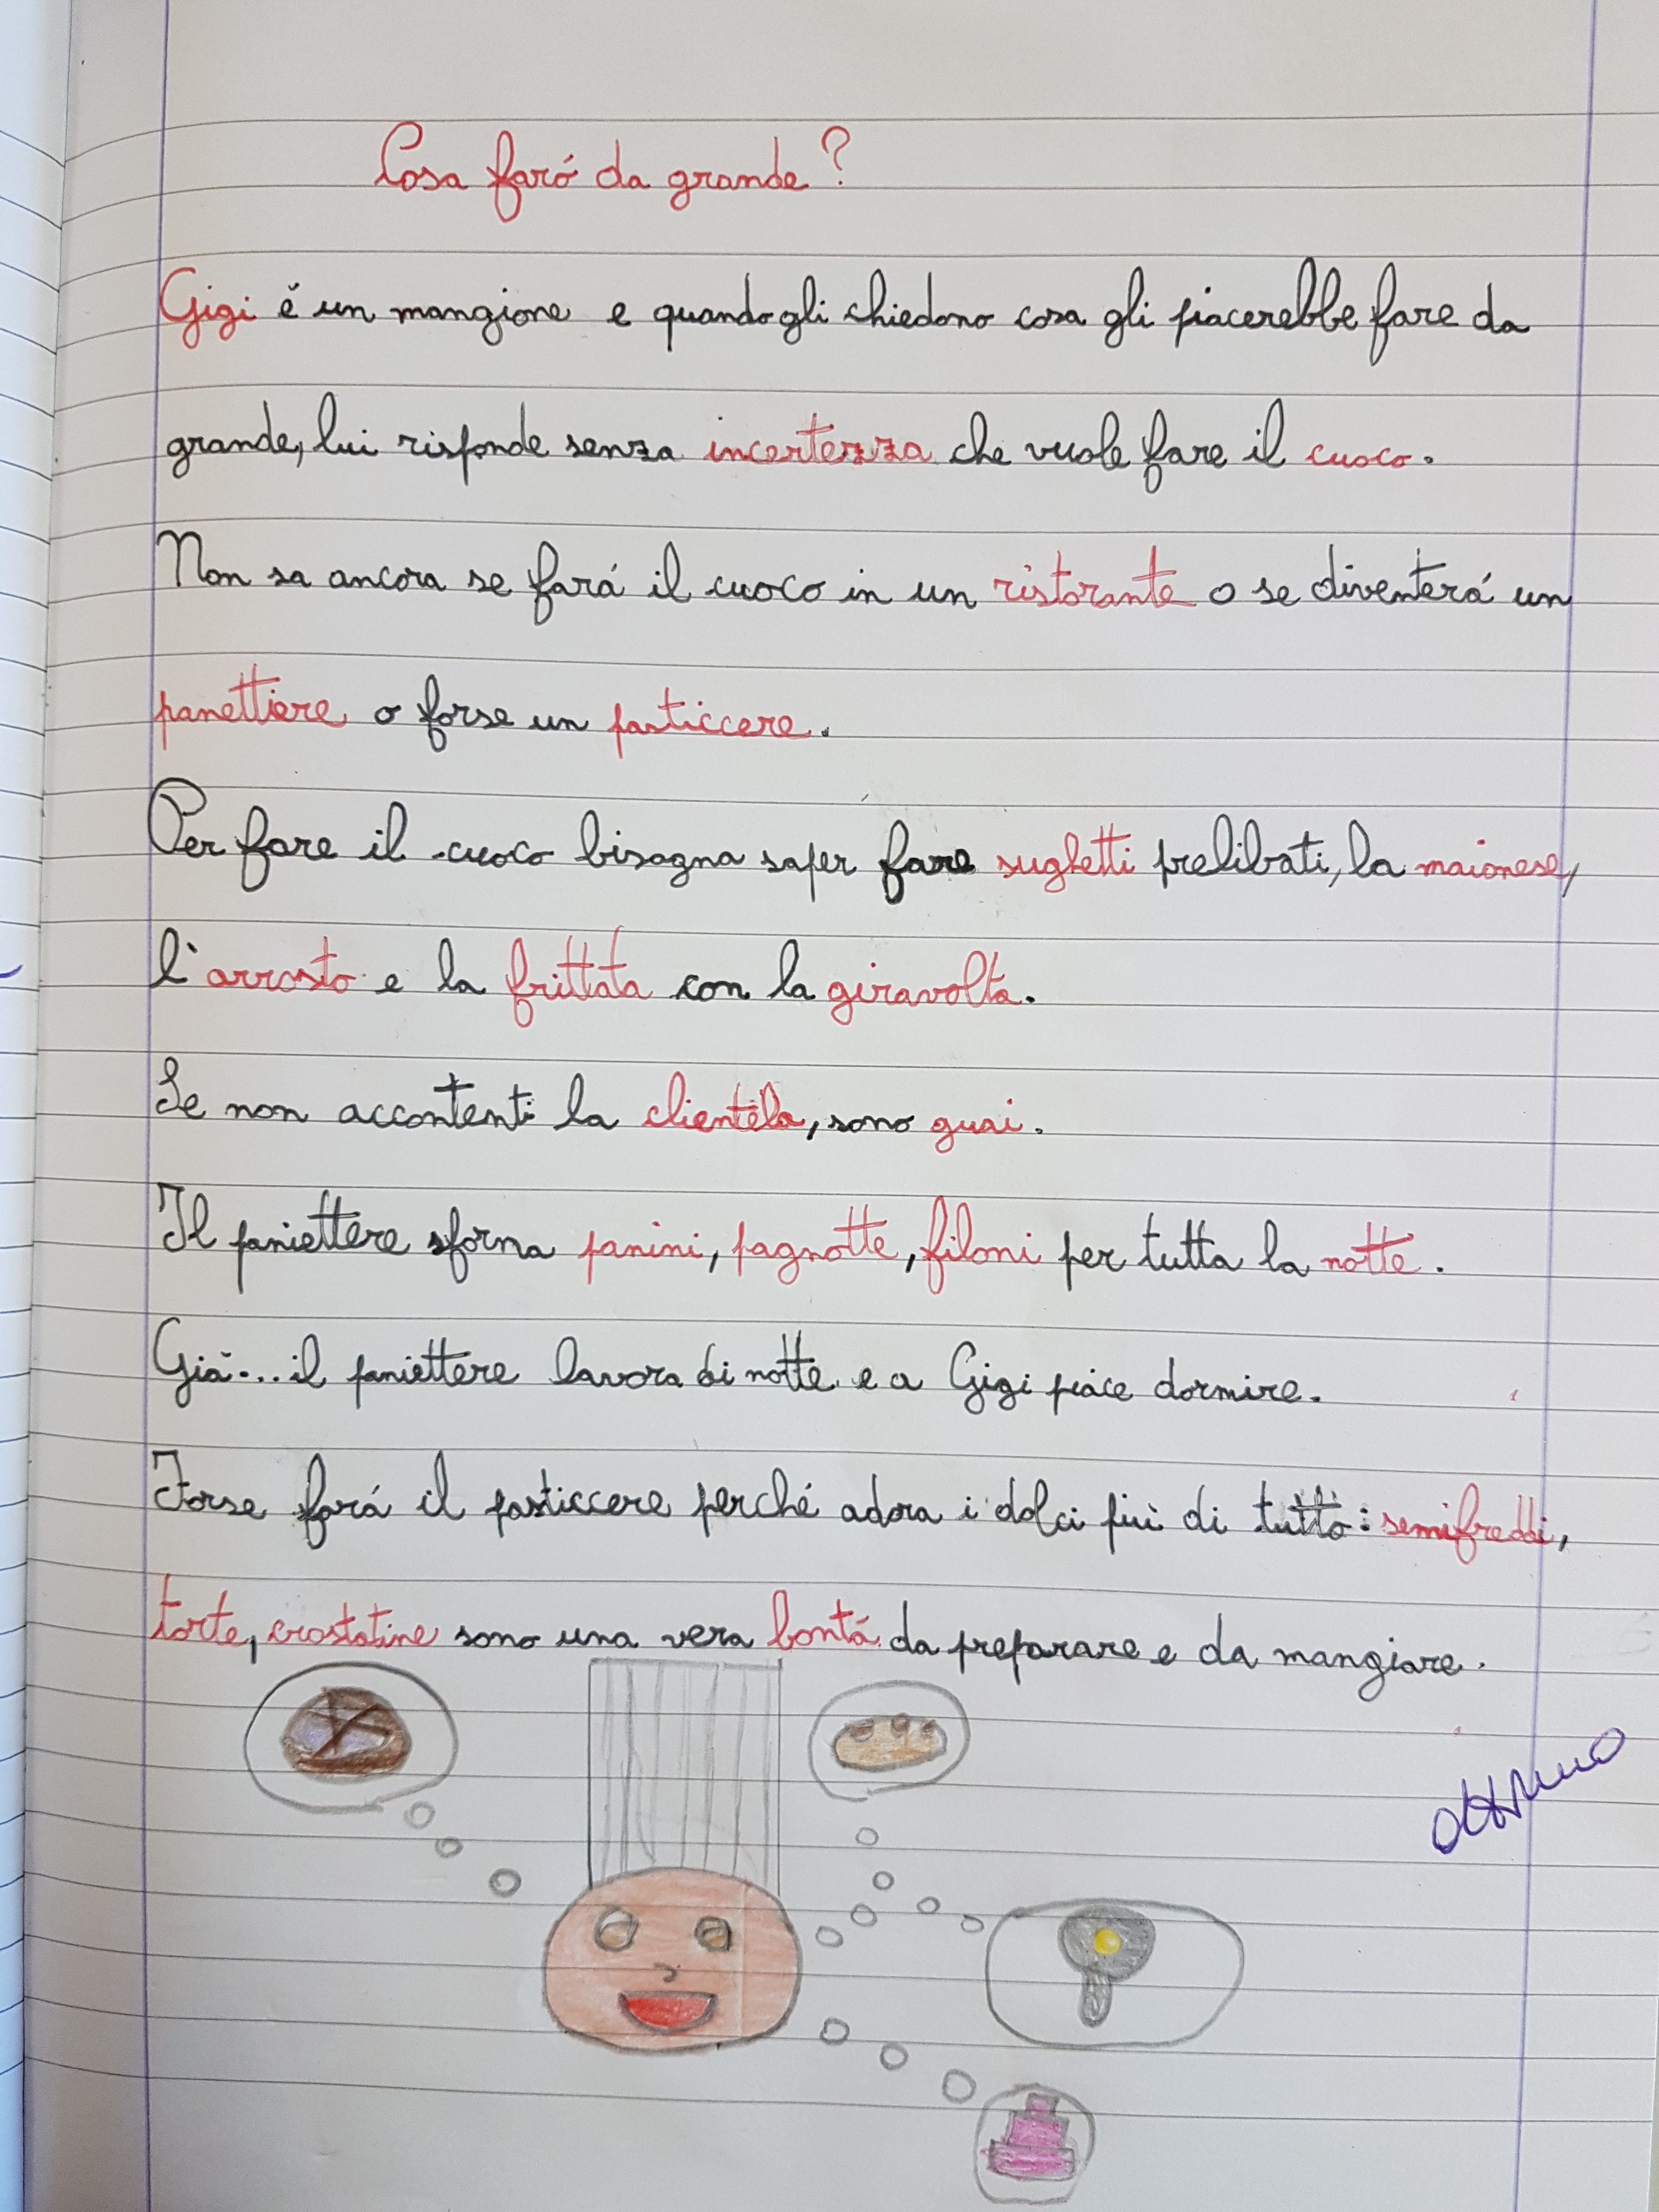 Cosa faró da grande?
Gigi é un mangione e quando gli chiedono cosa gli piacerebbe fare da
grande, lui risponde senza incertezza che vuole fare il cuoco.
Non sa ancora se fará il cuoco in un ristorante o se diventerá un
panettiere o forse un pasticcere.
Per fare il cuoco bisogna saper fare sughetti prelibati, la maionese,
l'arrosto e la frittata con la giravolta.
Se non accontenti la clientela, sono guai.
Il paniettere sforna panini, pagnotte, filoni per tutta la notte.
Giá... il paniettere lavora di notte e a Gigi piace dormire.
Forse fará il pasticcere perché adora i dolci piú di tutto: semifreddi,
torte, crostatine sono una vera bontá da preparare e da mangiare.
ottimo